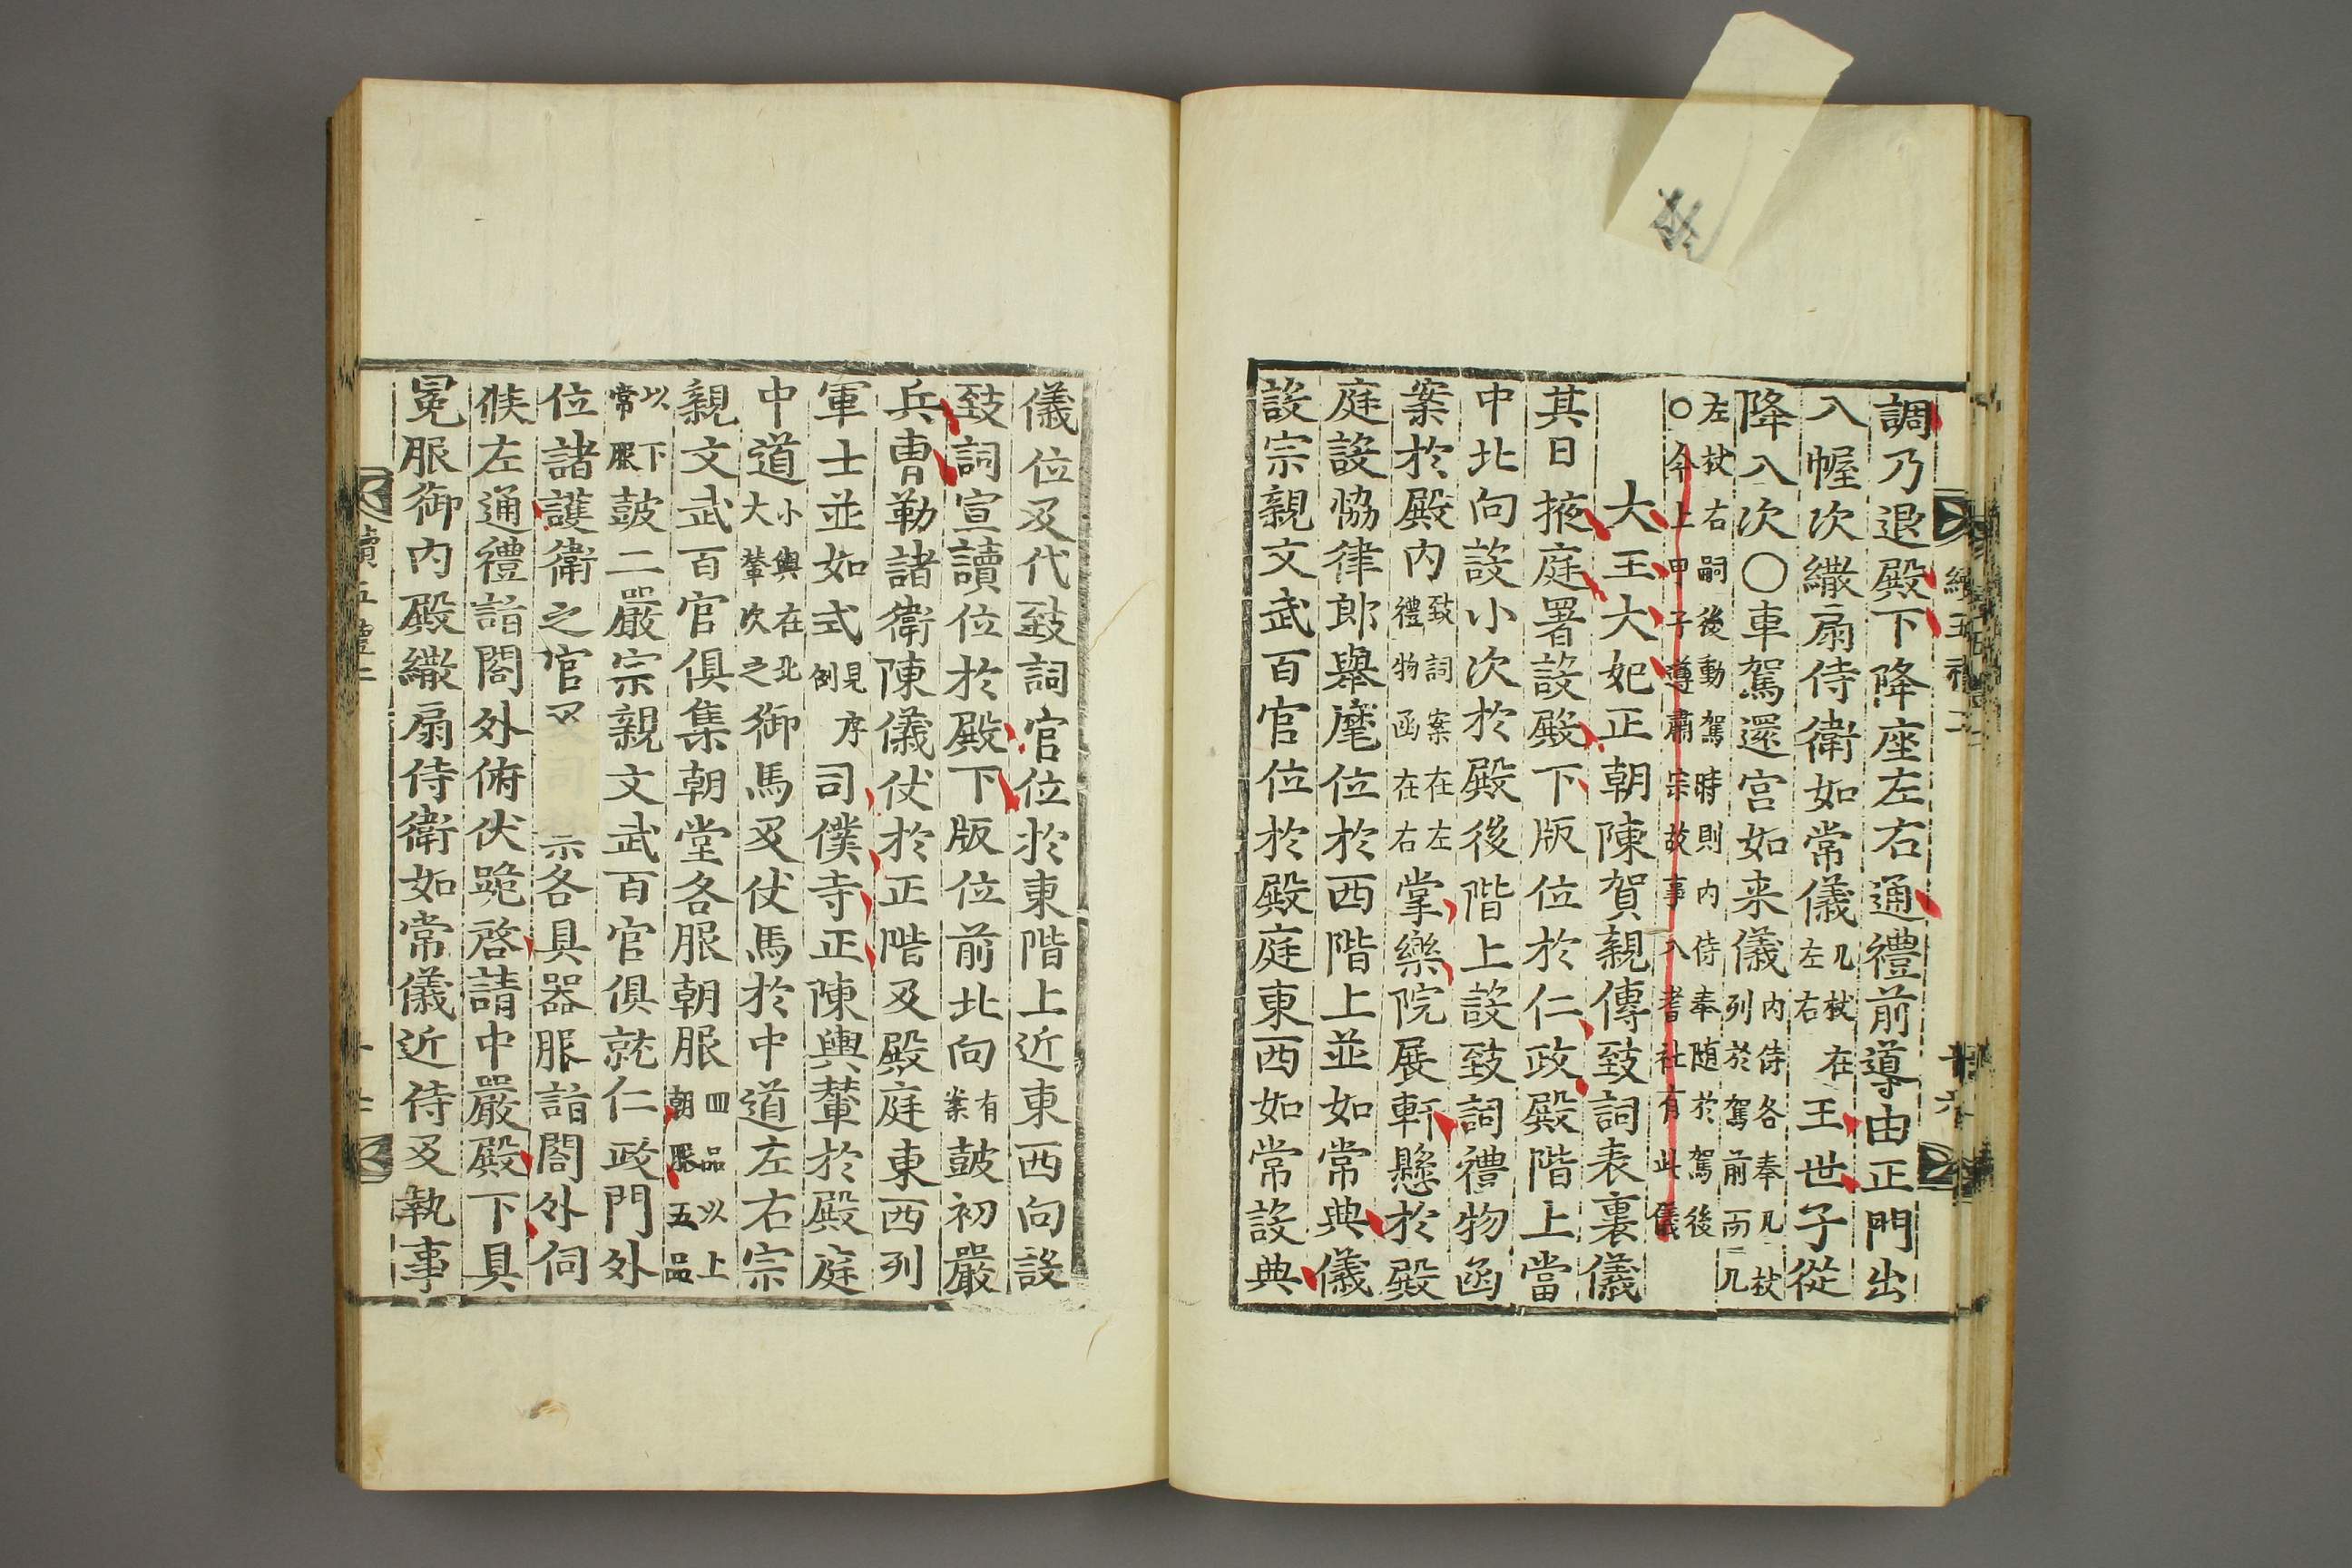 調乃退殿下降座左右通禮前導由正門出
入幄次繖扇侍衛如常儀几杖在左右王世子從
降入次○車駕還宮如来儀内侍各奉几杖列於駕前而几
左杖右嗣後動駕時則内侍奉随於駕後○今上甲子遵肅宗故事入耆社有此儀
大王大妃正朝陳賀親傳致詞表裏儀
其日掖庭署設殿下版位於仁政殿階上當
中北向設小次於殿後階上設致詞禮物函
案於殿内致詞案在左禮物函在右掌樂院展軒懸於殿
庭設恊律郎舉麾位於西階上並如常典儀
設宗親文武百官位於殿庭東西如常設典
儀位及代致詞官位於東階上近東西向設
致詞宣讀位於殿下版位前北向有案鼓初嚴
兵曹勒諸衛陳儀仗於正階及殿庭東西列
軍士並如式見序例司僕寺正陳輿輦於殿庭
中道小輿在北大輦次之御馬及仗馬於中道左右宗
親文武百官俱集朝堂各服朝服四品以上朝服五品
以下常服鼓二嚴宗親文武百官俱就仁政門外
位諸護衛之官及各具器服詣閤外伺
候左通禮詣閤外俯伏跪啓請中嚴殿下具
冕服御内殿繖扇侍衛如常儀近侍及執事
續五禮二
十六